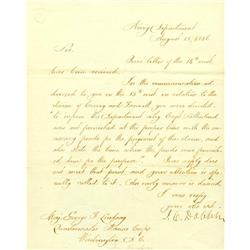 Navy Department
August 15, 1846
Sir,
Your letter of the 14th inst.
has been received.
In the communication ad-
dressed to you on the 13th inst. in relation to the
claim of you were decided,
to inform the Department why Capt.
was not furnished at the proper time with the ne-
cessary funds for the payment of this claim, and
also state the time when the funds were furnished
him for the purpose. Your reply does
not meet that point, and your attention is again
called to it. An early answer is desired.
I am resp.
your obt. svt.
Maj. George F. Lindsay
Quartermaster Marine Corps
Washington, D.C.